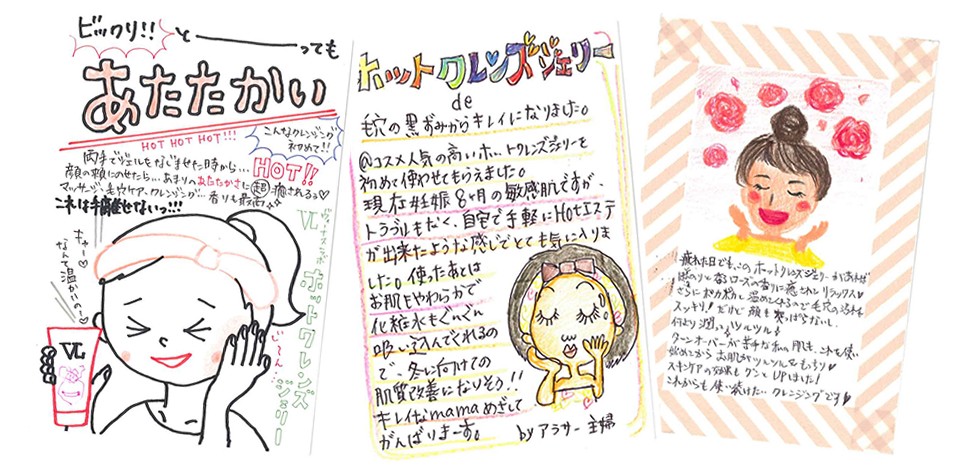 ビックリ!!と――っても
あたたかい
HOT HOT HOT!!!
こんなクレンジング
初めて!!
両手でジェルをなじませた時から…
HOT!!
顔の頬にのせたら…あまりのあたたかさに超癒されるぅ♡
マッサージ、毛穴ケア、クレンジング…香りも最高☆☆
これは手離せないっ!!!
キャー♡
なんて温かいの〜!
VL
ホットクレンズ
ジェリー
ホットクレンズジェリー
de
毛穴の黒ずみからキレイになりました。
@コスメ人気の高いホットクレンズジェリーを
初めて使わせてもらえました。
現在妊娠8ヶ月の敏感肌ですが、
トラブルもなく、自宅で手軽にHotエステ
が出来たような感じでとても気に入りま
した。使ったあとは
お肌もやわらかで
化粧水もぐんぐん
吸い込んでくれるの
で、冬に向けての
肌質改善になりそう!!
キレイなmamaめざして
がんばりまーす。
by アラサー主婦
疲れた日でも、このホットクレンズジェリーがあれば
ほんのりと香るローズの香りに癒されリラックス♡
さらにポカポカと温めてくれるので毛穴の汚れ
スッキリ!だけど顔も突っぱらないし、
何より潤ってツルツル♪
ターンオーバーが苦手な私の肌も、これを使い
始めてからお肌がツルツルすべすべ♡
スキンケアの効果もグンとUPしました!
これからも使い続けたいクレンジングです♡